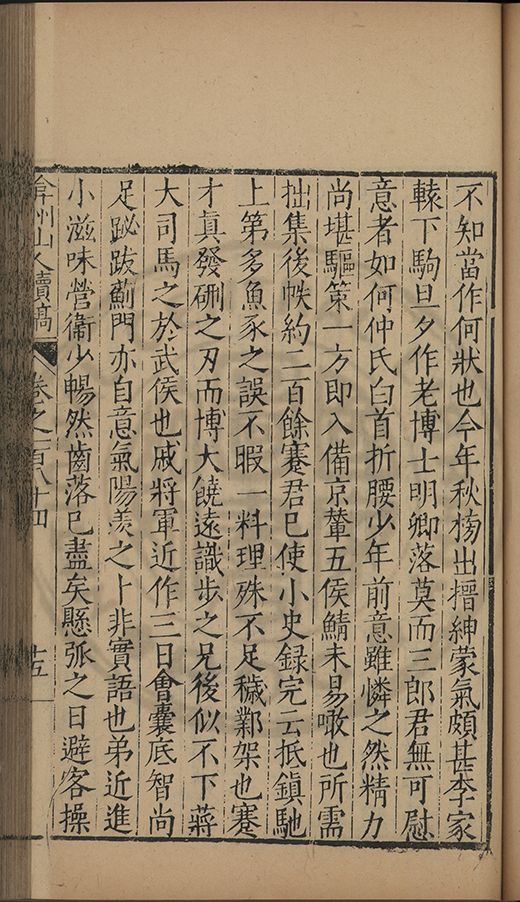 不知當作何狀也今年秋榜出搢紳蒙氣頗甚李家
轅下駒旦夕作老博士明卿落莫而三郎君無可慰
意者如何仲氏白首折腰少年前意雖憐之然精力
尚堪驅策一方即入備京輦五侯鯖未易噉也所需
拙集後帙約二百餘蹇君已使小史録完云抵鎮馳
上第多魚豕之誤不暇一料理殊不足穢鄴架也蹇
才真發硎之刃而博大饒遠識步之兄後似不下蔣
大司馬之於武侯也戚將軍近作三日會囊底智尚
足跛䟦薊門亦自意氣陽羨之卜非實語也弟近進
小滋味營衞少暢然齒落已盡矣懸弧之日避客操
弇州山人續稿
卷之一百八十四
十五